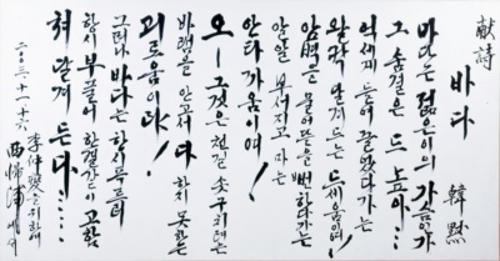 献詩
바다
韓黙
바다는 젊은이의 가슴인가
그 숨결은 드높아...
억세게 들여 끌었다가는
왈칵 달겨드는 드세움이여!
암벽을 물어뜯을 뻔하다가는
알알 부서지고 마는
안타까움이여!
오ㅡ 그것은 천길 솟구치려는
바램을 안고서 다 하지 못하는
괴로움이라!
그러나 바다는 항시 푸르러
항시 부풀어 한결같이 고함
쳐 달겨 든다......
二〇〇三·十一·十六
李仲燮을 위하여
西帰浦에서